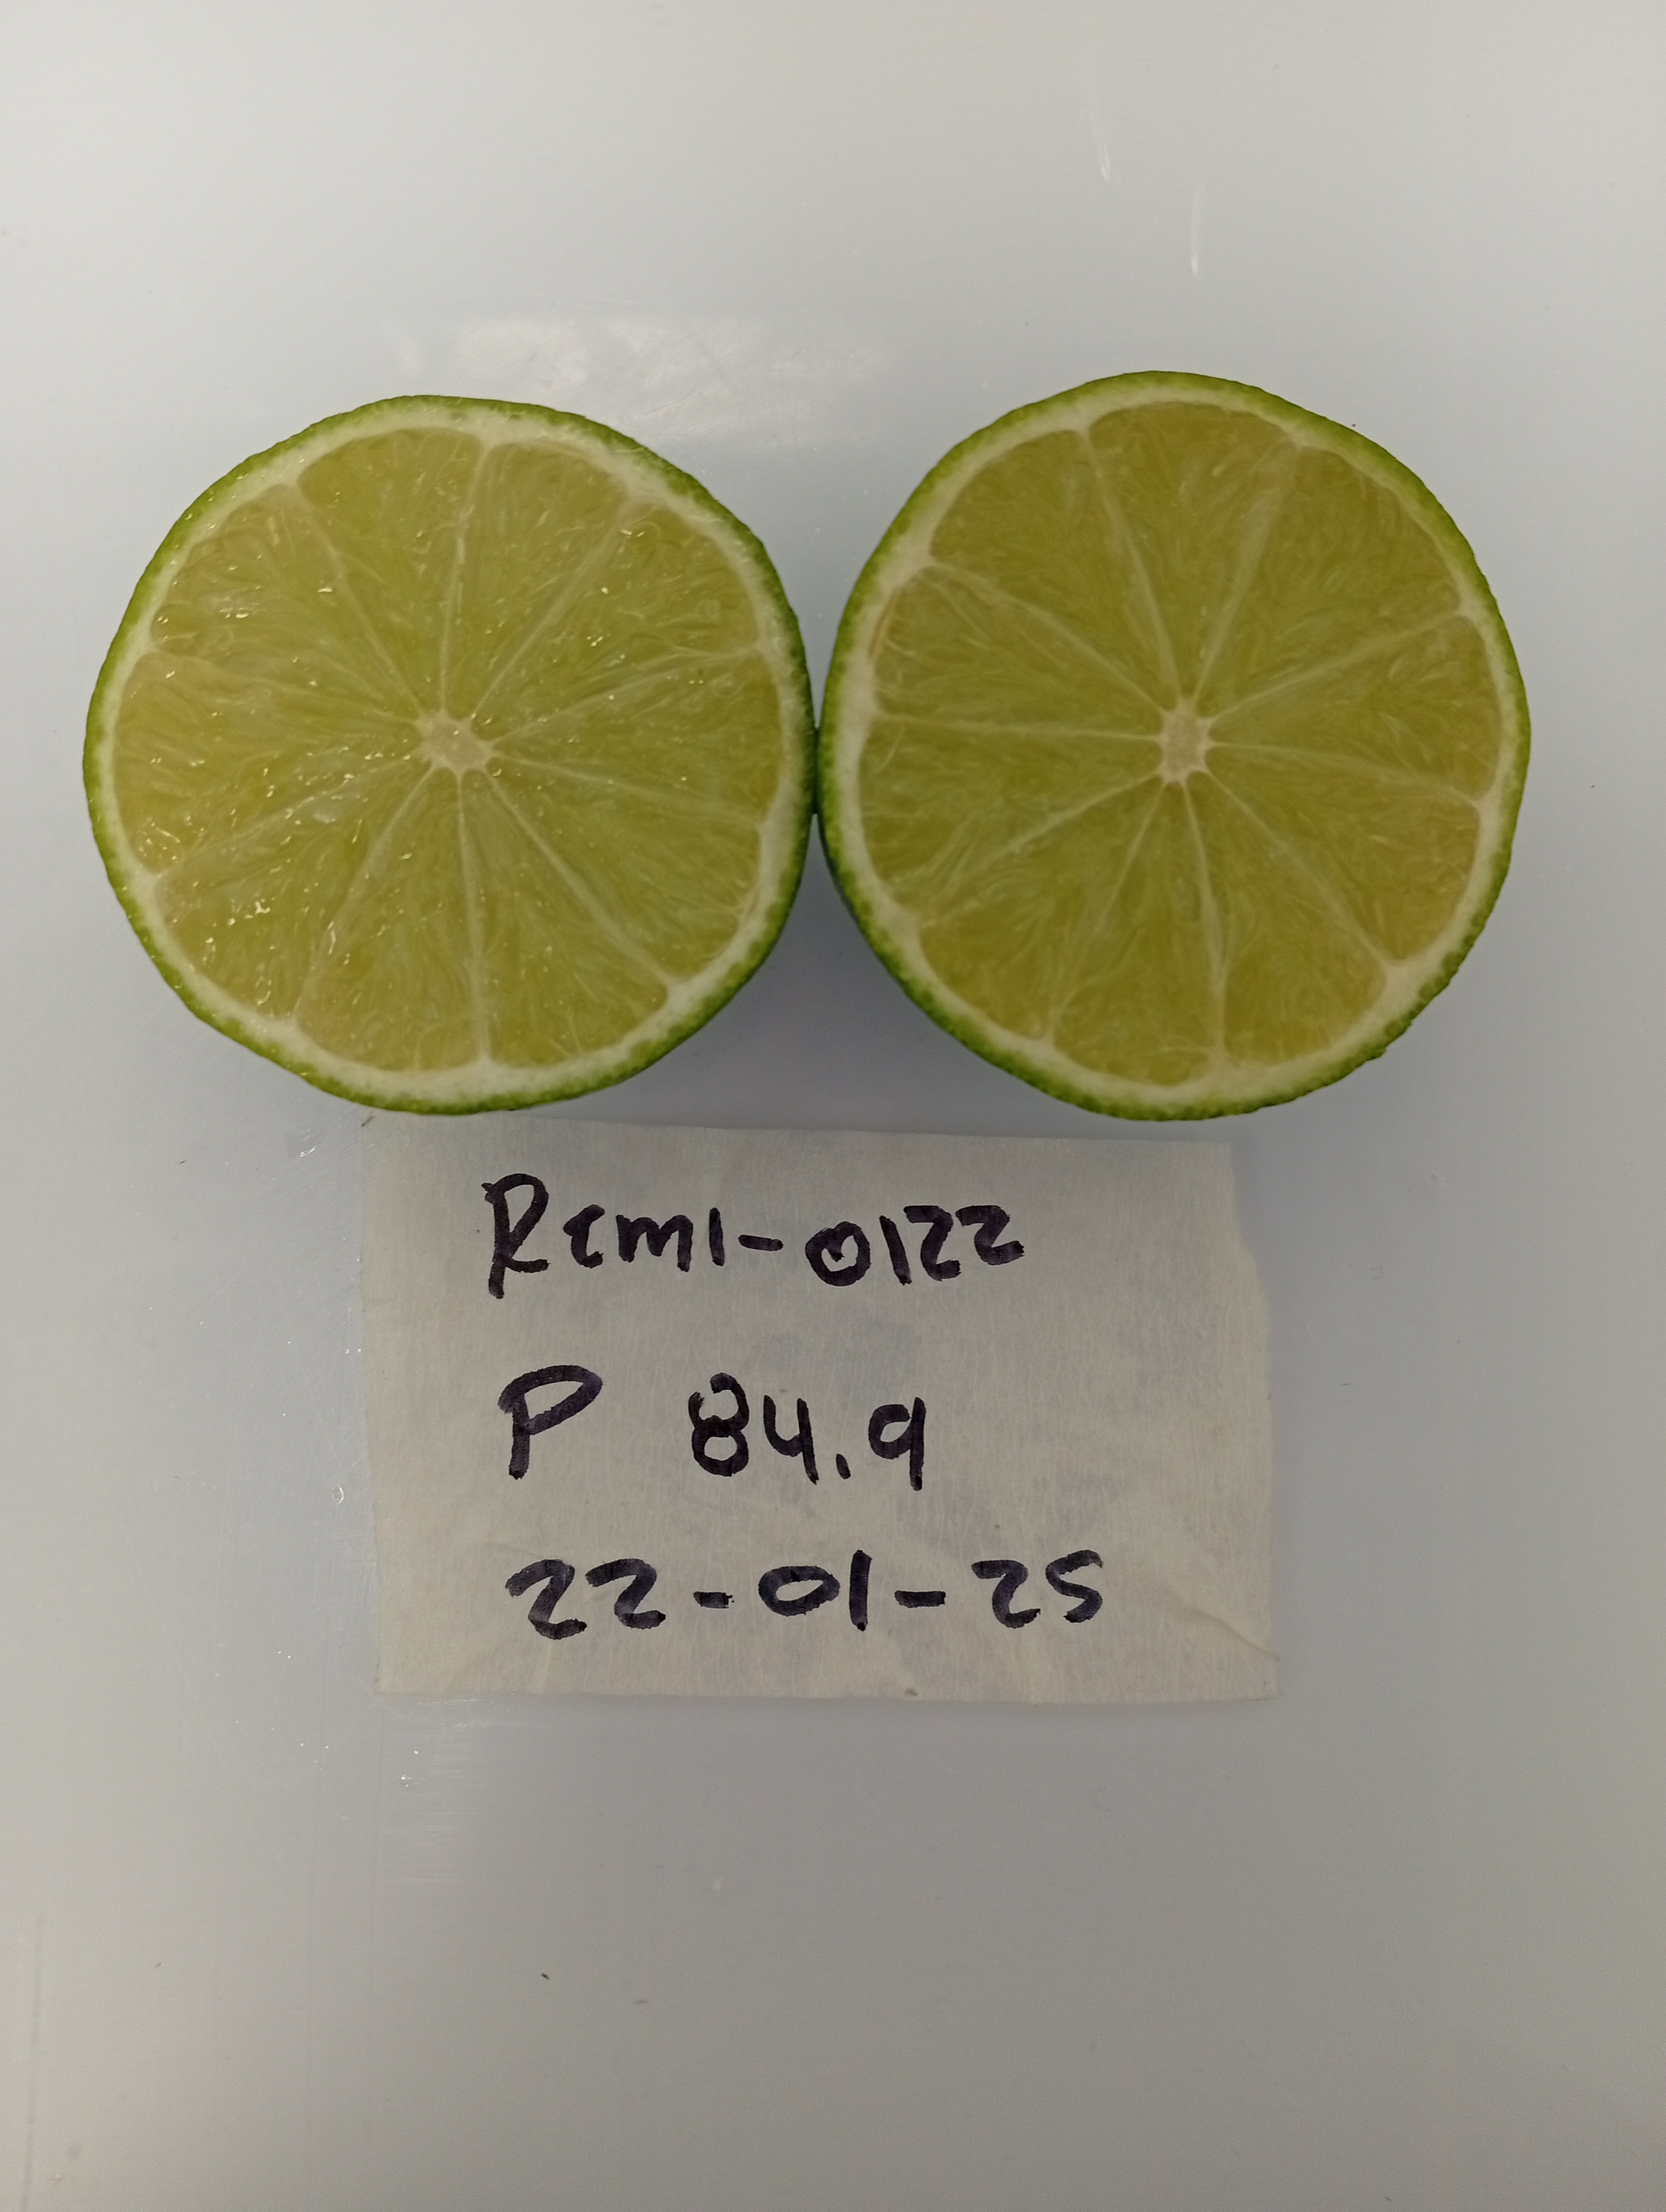 Rem1-0122
P 84.9
22-01-25